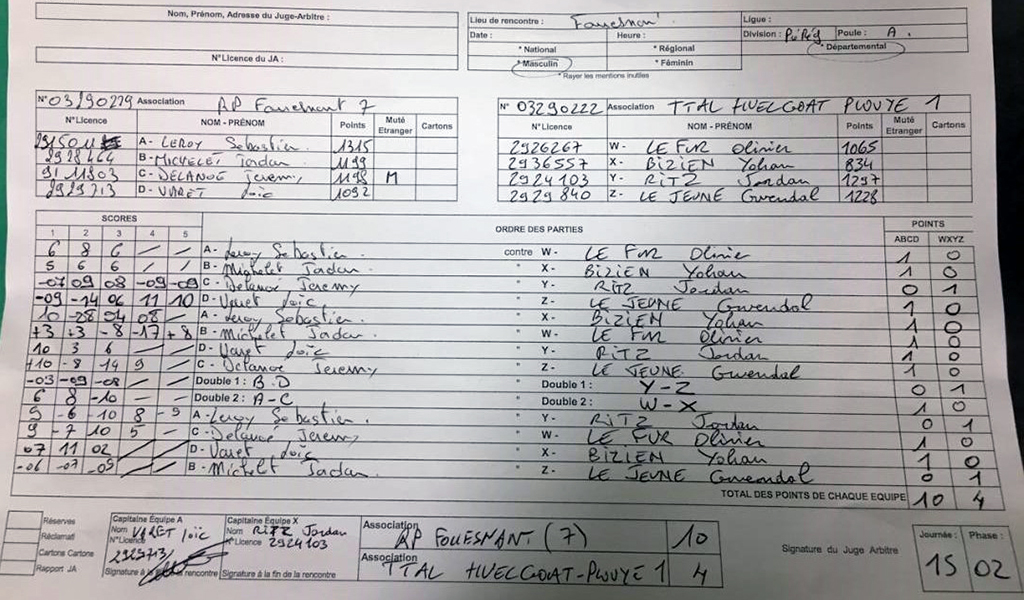 Nom, Prénom, Adresse du Juge-Arbitre :
N°Licence du JA :
Lieu de rencontre : Fouesnant
Date : Heure :
* National * Régional
* Masculin * Féminin
* Rayer les mentions inutiles
Ligue :
Division : PéRég Poule : A.
* Départemental
N° 03290229 Association AP Fouesnant 7
N°Licence NOM - PRÉNOM Points Muté Etranger Cartons
A- LEROY Sebastien. 1315
2928464 B- MICHELET Jordan. 1199
9111803 C- DÉLANOÉ Jeremy 1198 M
2929713 D- VARET Loïc 1092
N° 03290222 Association TTAL HUELGOAT PLOUYE 1
N°Licence NOM - PRÉNOM Points Muté Etranger Cartons
2926267 W- LE FUR Olivier 1065
2936557 X- BIZIEN Yohan 834
2924103 Y- RITZ Jordan 1297
2929840 Z- LE JEUNE Gwendal 1228
SCORES ORDRE DES PARTIES POINTS
1 2 3 4 5 ABCD WXYZ
6 8 6 / / A- Leroy Sebastien. contre W- LE FUR Olivier 1 0
5 6 6 / / B- Michelet Jordan. " X- BIZIEN Yohan 1 0
-07 09 08 -09 -09 C- Delanoé Jeremy " Y- RITZ Jordan 0 1
-09 -14 06 11 10 D- Varet Loïc. " Z- LE JEUNE Gwendal 1 0
10 -08 04 08 / A- Leroy Sebastien. " X- BIZIEN Yohan 1 0
+3 +3 -8 -17 +8 B- Michelet Jordan. " W- LE FUR Olivier 1 0
10 3 6 / / D- Varet Loïc. " Y- RITZ Jordan 1 0
+10 -8 14 9 / C- Delanoé Jeremy " Z- LE JEUNE Gwendal 1 0
-03 -09 -08 / / Double 1 : B.D " Double 1 : Y-Z 0 1
6 8 -10 / Double 2 : A-C " Double 2 : W-X 1 0
9 -6 -10 8 -9 A- Leroy Sebastien. " Y- RITZ Jordan 0 1
9 -7 10 5 / C- Delanoé Jeremy " W- LE FUR Olivier 1 0
07 11 02 / / D- Varet Loïc " X- BIZIEN Yohan 1 0
-06 -07 -09 / / B- Michelet Jordan. " Z- LE JEUNE Gwendal 0 1
TOTAL DES POINTS DE CHAQUE EQUIPE 10 4
Réserves
Réclamati
Cartons Cartons
Rapport JA
Capitaine Équipe A
Nom VARET Loïc
N°Licence
2929713
Signature à la fin de la rencontre
Capitaine Équipe X
Nom RITZ Jordan
N°Licence 2924103
Signature à la fin de la rencontre
Association AP FOUESNANT (7) 10
Association TTAL HUELGOAT-PLOUYE 1 4
Signature du Juge Arbitre
Journée : Phase :
15 02